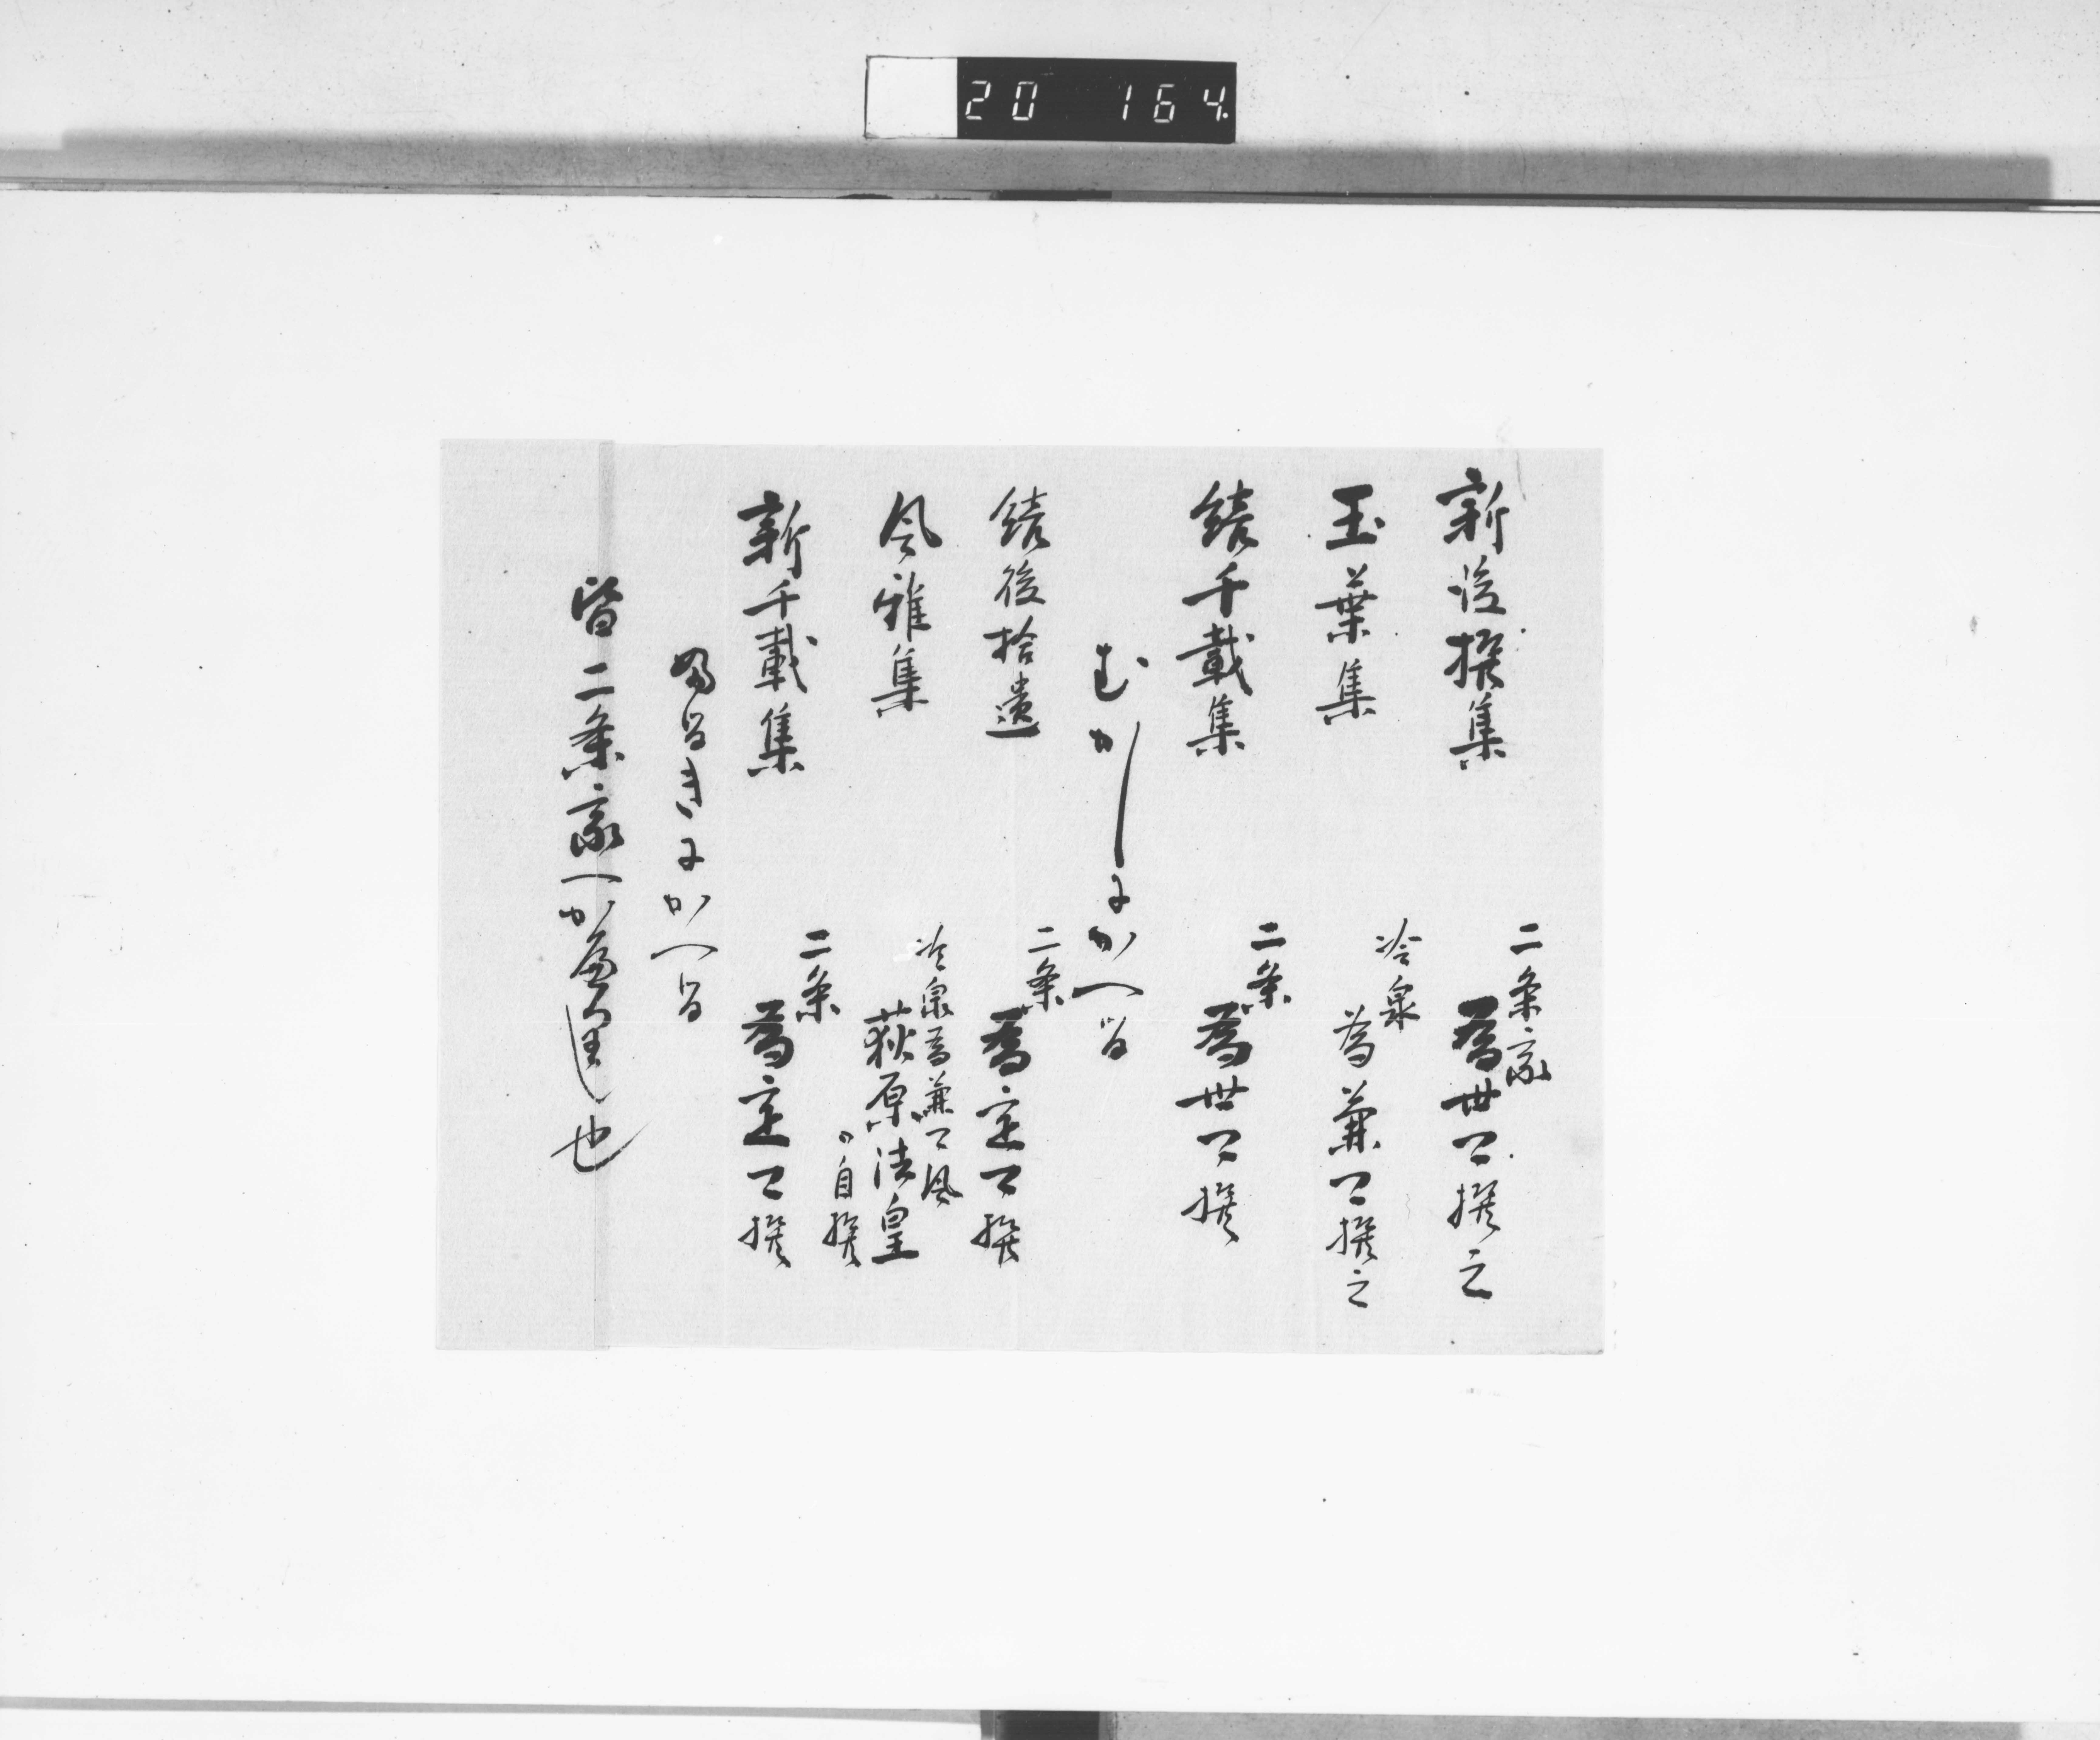 20 164
新後撰集
二条家
為世卿撰之
玉葉集
冷泉
為兼卿撰之
続千載集
二条
為世卿撰
むかしにかへる
続後拾遺
二条
為定卿撰
風雅集
冷泉為兼卿風
荻原法皇
御自撰
新千載集
二条
為定卿撰
ふるきにかへる
皆二条家へかへ也